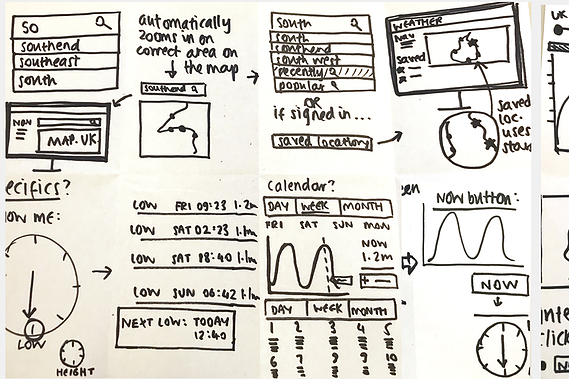 SO
southend
southeast
south
automatically
zooms in on
correct area on
the map
southend
NAV
MAP-UK
South
south
southend
south west
recently
popular
OR
if signed in...
saved locations
WEATHER
NAV
saved
saved
loc.
uses
UK
ecifics?
OW ME:
LOW
HEIGHT
LOW FRI 09:23 1.2m
LOW SAT 02:23 1.1m
LOW SAT 18:40 1.1m
LOW SUN 06:42 1.1m
NEXT LOW: TODAY
18:40
Calendar?
DAY WEEK MONTH
FRI SAT SUN MON
NOW
1.2m
DAY WEEK MONTH
1 2 3 4 5
6 7 8 9 10
NOW button:
NOW